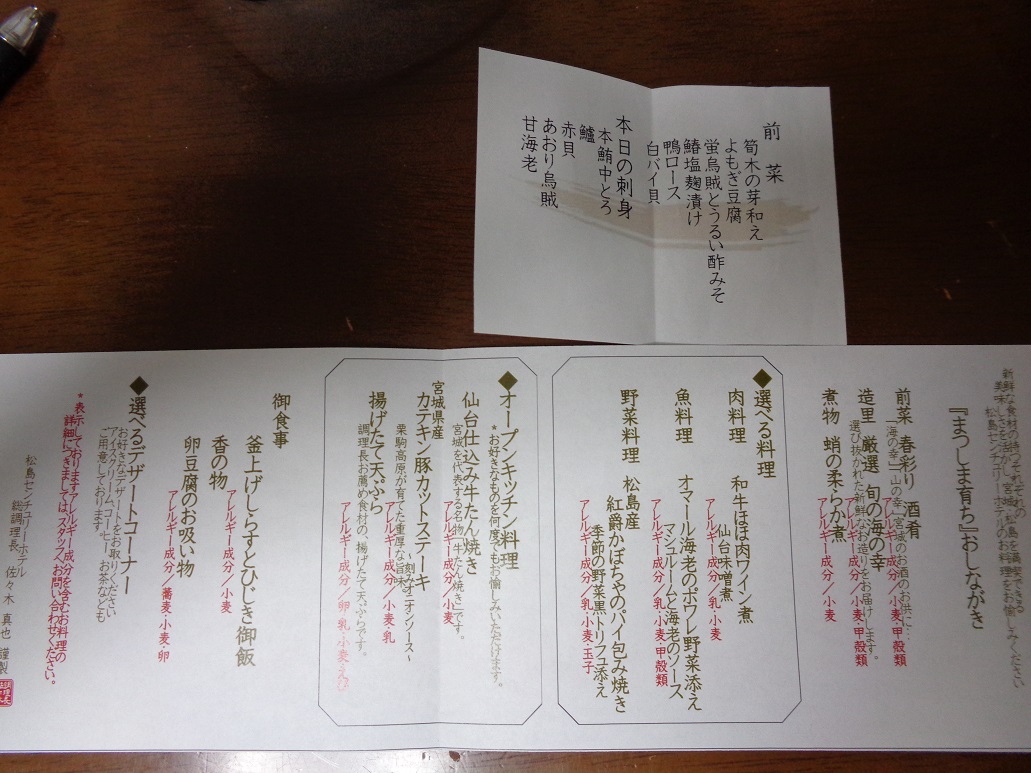 前菜
筍木の芽和え
よもぎ豆腐
蛍烏賊とうるい酢みそ
鰆塩麹漬け
鴨ロース
白バイ貝
本日の刺身
本鮪中とろ
鱸
赤貝
あおり烏賊
甘海老
新鮮な食材の持つそれぞれの
美味しさを活かし、宮城、松島を満喫できる
松島センチュリーホテルのお料理をお愉しみください。
『まつしま育ち』おしながき
前菜 春彩り 酒肴
アレルギー成分／小麦・甲殻類
「海の幸」「山の幸」宮城のお酒のお供に…
造里 厳選 旬の海の幸
アレルギー成分／小麦・甲殻類
選び抜かれた新鮮なお造りをお届けします。
煮物 蛸の柔らか煮
アレルギー成分／小麦
◆選べる料理
肉料理 和牛ほほ肉ワイン煮
仙台味噌煮
アレルギー成分／乳・小麦
魚料理 オマール海老のポワレ野菜添え
マシュルームと海老のソース
アレルギー成分／乳・小麦・甲殻類
野菜料理 松島産
紅爵かぼちゃのパイ包み焼き
季節の野菜黒トリフュ添え
アレルギー成分／乳・小麦・玉子
◆オープンキッチン料理
＊お好きなものを何度でもお愉しみいただけます。
仙台仕込み牛たん焼き
宮城を代表する名物「牛たん焼き」です。
宮城県産
カテキン豚カットステーキ
～刻みオニオンソース～
栗駒高原が育てた重厚な旨味
アレルギー成分／小麦・乳
揚げたて天ぷら
調理長お薦め食材の、揚げたて天ぷらです。
アレルギー成分／卵・乳・小麦・えび
御食事
釜上げしらすとひじき御飯
アレルギー成分／小麦
香の物
卵豆腐のお吸い物
アレルギー成分／蕎麦・小麦・卵
◆選べるデザートコーナー
お好きなデザートをお取りください
アイスクリーム、コーヒー、お茶なども
ご用意しております。
＊表示しておりますアレルギー成分を含むお料理の
詳細につきましては、スタッフへお問い合わせください。
松島センチュリーホテル
総調理長 佐々木 真也 謹製